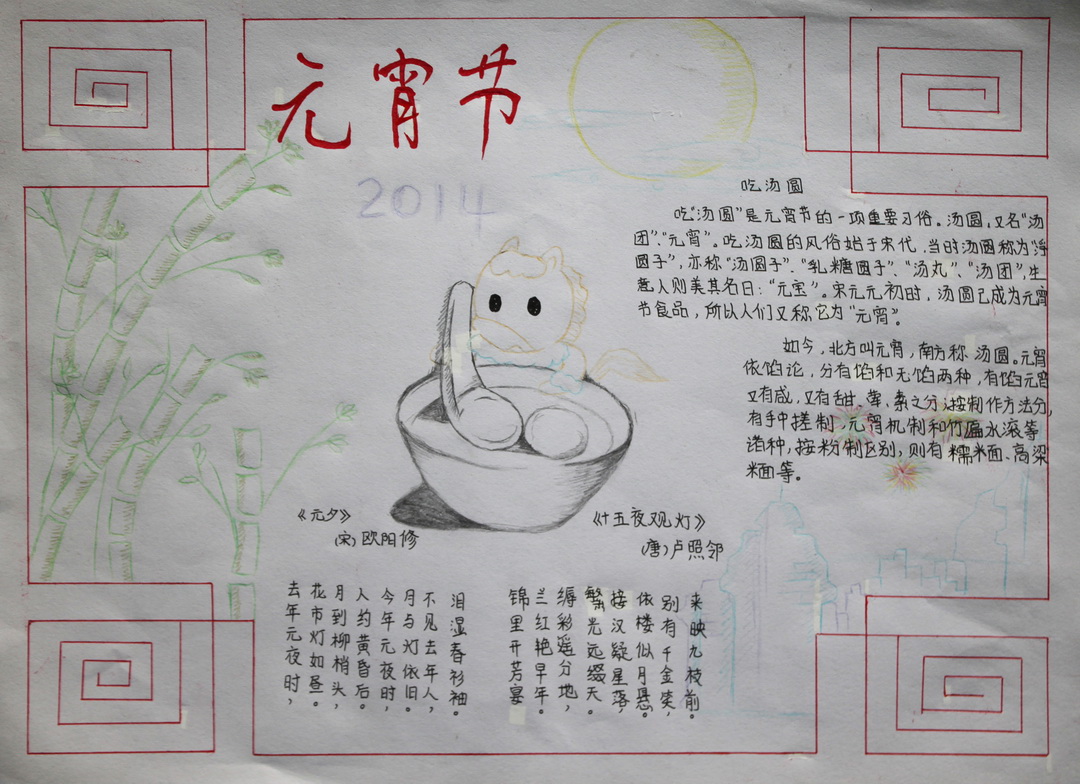 元宵节
2014
吃汤圆
吃“汤圆”是元宵节的一项重要习俗。汤圆,又名“汤
团”、“元宵”。吃汤圆的风俗始于宋代,当时汤圆称为“浮
圆子”,亦称“汤圆子”、“乳糖圆子”、“汤丸”、“汤团”,生
意人则美其名曰:“元宝”。宋元元初时,汤圆已成为元宵
节食品,所以人们又称它为“元宵”。
如今,北方叫元宵,南方称汤圆。元宵
依馅论,分有馅和无馅两种,有馅元宵
又有咸,又有甜、荤、素之分;按制作方法分,
有手中搓制、元宵机制和竹匾水滚等
诸种,按粉制区别,则有糯米面、高梁
米面等。
《元夕》
(宋)欧阳修
去年元夜时,
花市灯如昼。
月到柳梢头,
人约黄昏后。
今年元夜时,
月与灯依旧。
不见去年人,
泪湿春衫袖。
《十五夜观灯》
(唐)卢照邻
锦里开芳宴
兰红艳早年。
缛彩遥分地,
繁光远缀天。
接汉疑星落,
依楼似月悬。
别有千金笑,
来映九枝前。